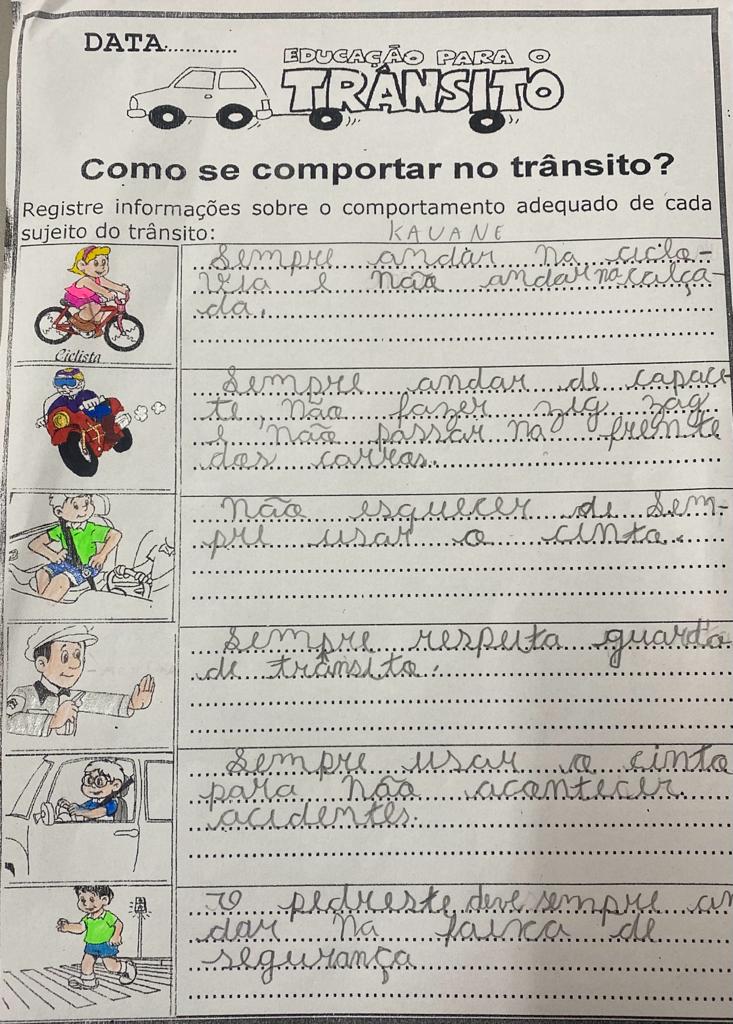 DATA:............
EDUCAÇÃO PARA O
TRÂNSITO
Como se comportar no trânsito?
Registre informações sobre o comportamento adequado de cada
sujeito do trânsito:
KAUANE
Ciclista
Sempre andar na ciclo-
via e não andar na calça-
da.
Sempre andar de capace-
te, não fazer zig zag
e não passar na frente
dos carros.
Não esquecer de sem-
pre usar o cinto.
Sempre respeita guarda
de trânsito.
Sempre usar o cinto
para não acontecer
acidentes.
O pedreste deve sempre an
dar na faixa de
segurança